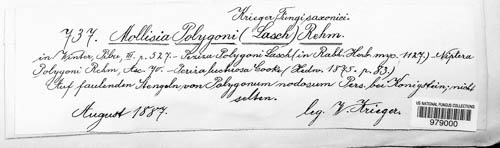 Krieger, Fungi saxonici.
737. Mollisia Polygoni (Lasch) Rehm.
in Winter, Pilze, III. p. 527. – Peziza Polygoni Lasch (in Rabh. Herb. myc. 1127.) Niptera
Polygoni Rehm, Asc. 70. – Peziza pruinosa Cooke (Hedw. 1875. p. 83.)
Auf faulenden Stengeln von Polygonum nodosum Pers. bei Königstein, nicht
selten.
August 1887. leg. W. Krieger.
US NATIONAL FUNGUS COLLECTIONS
979000